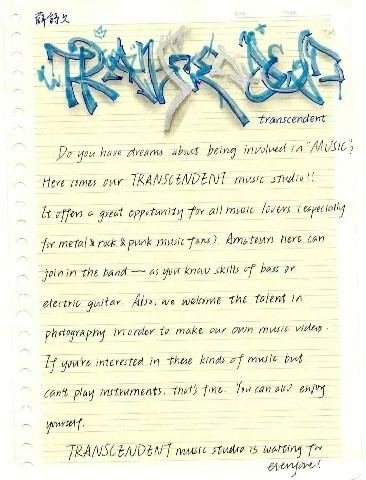 薛詩文
TRANSCENDENT
transcendent
Do you have dreams about being involved in "MUSIC"?
Here comes our TRANSCENDENT music studio!!
It offers a great oppotunity for all music lovers (especially
for metal & rock & punk music fans). Amateurs here can
join in the band — as you know skills of bass or
electric guitar. Also, we welcome the talent in
photography in order to make our own music video.
If you're interested in these kinds of music but
can't play instruments, that's fine. You can also enjoy
yourself.
TRANSCENDENT music studio is waiting for
everyone!